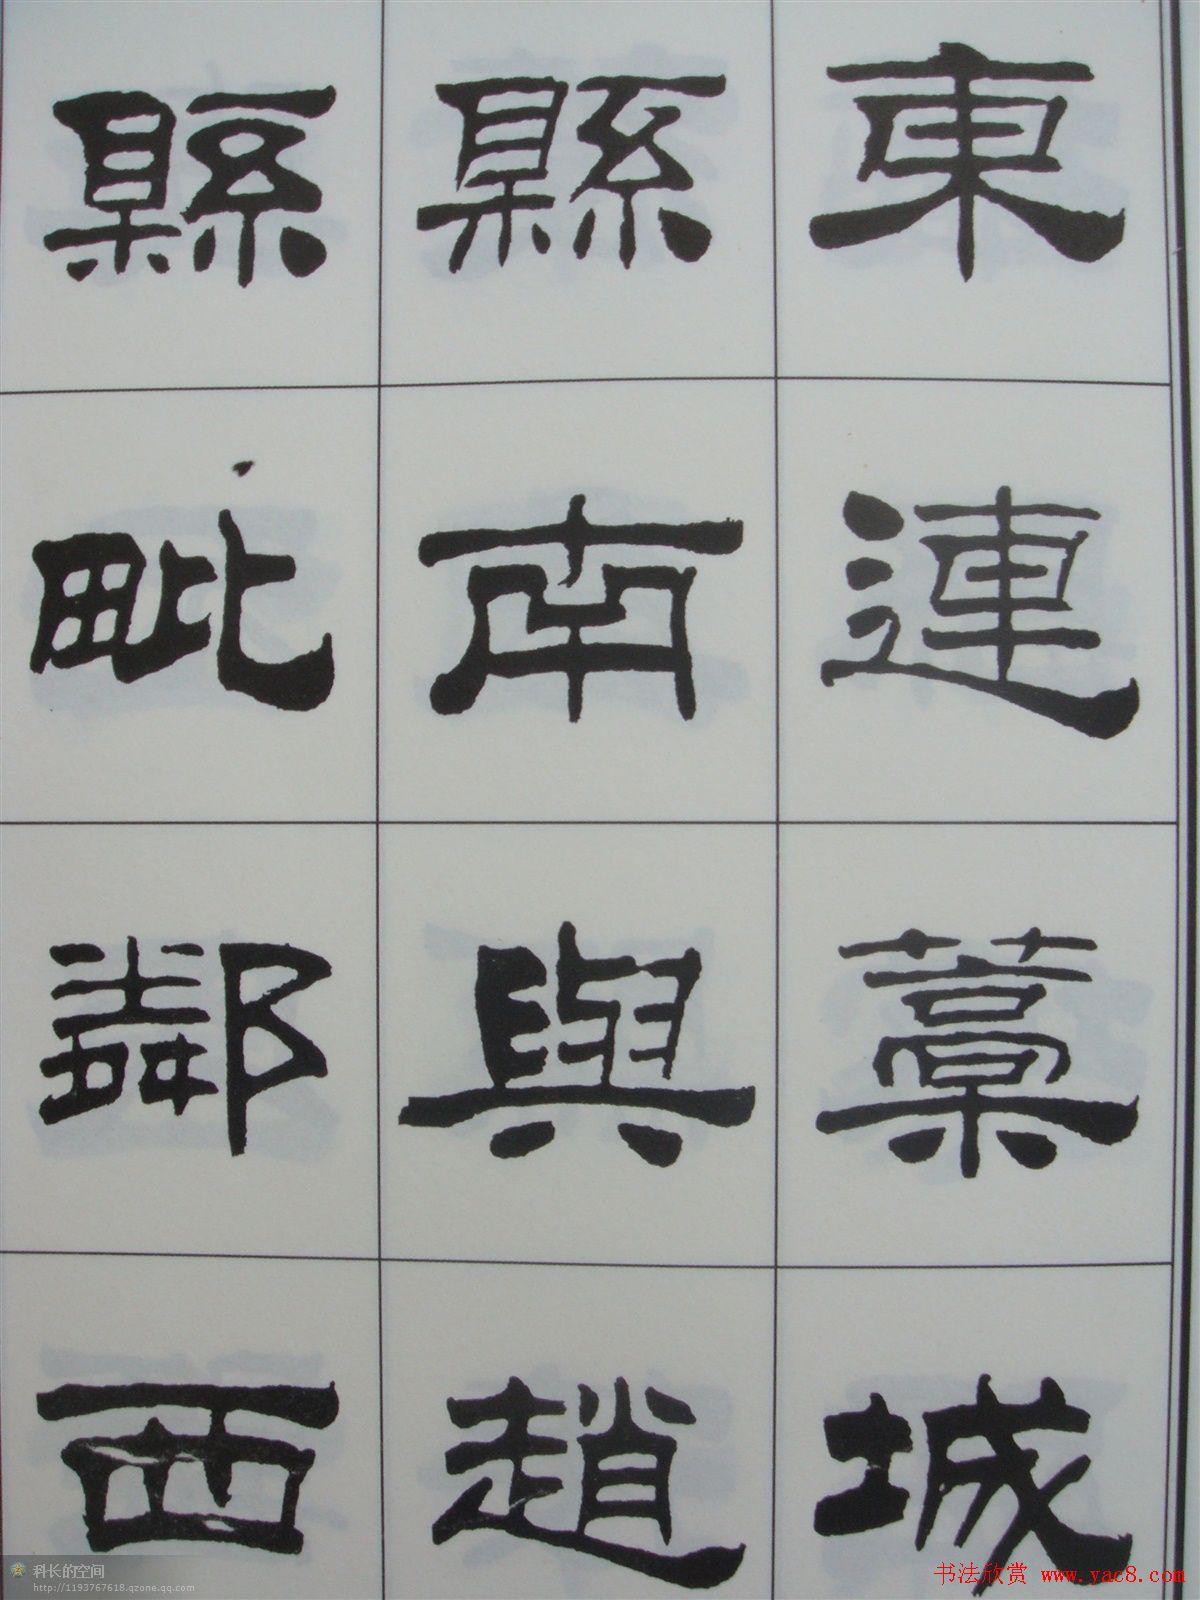 東連藁城
縣南與趙
縣毗鄰西
科长的空间
http://1193767618.qzone.qq.com
书法欣赏 www.yac8.com